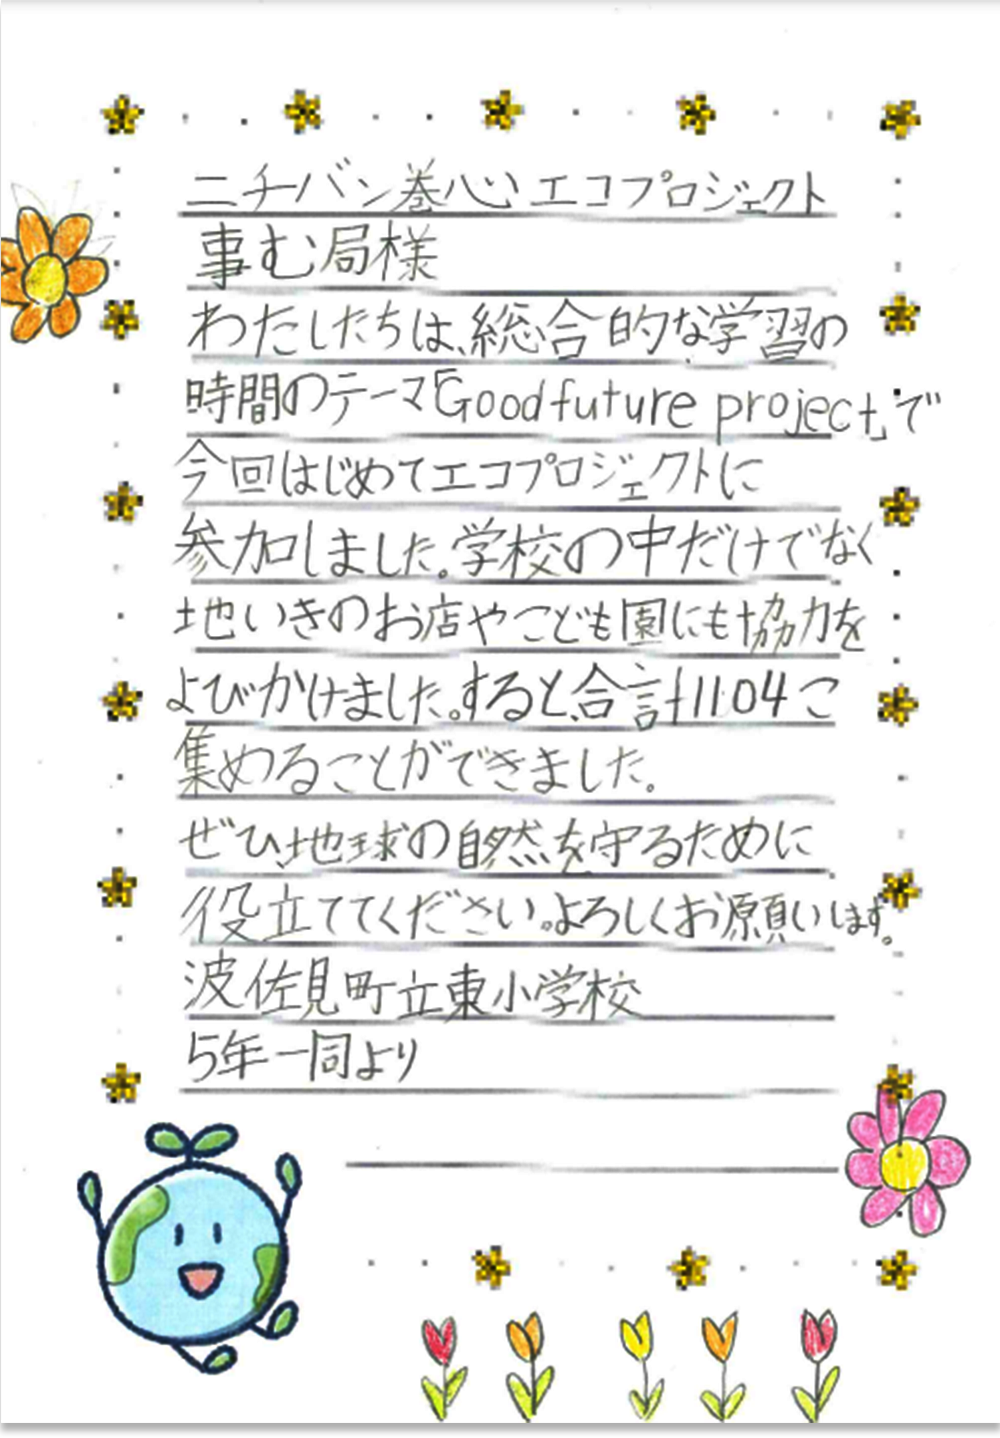 ニチバン巻心エコプロジェクト
事む局様
わたしたちは、総合的な学習の
時間のテーマ「Good future project」で
今回はじめてエコプロジェクトに
参加しました。学校の中だけでなく
地いきのお店やこども園にも協力を
よびかけました。すると、合計1104こ
集めることができました。
ぜひ、地球の自然を守るために
役立ててください。よろしくお願いします。
波佐見町立東小学校
5年一同より